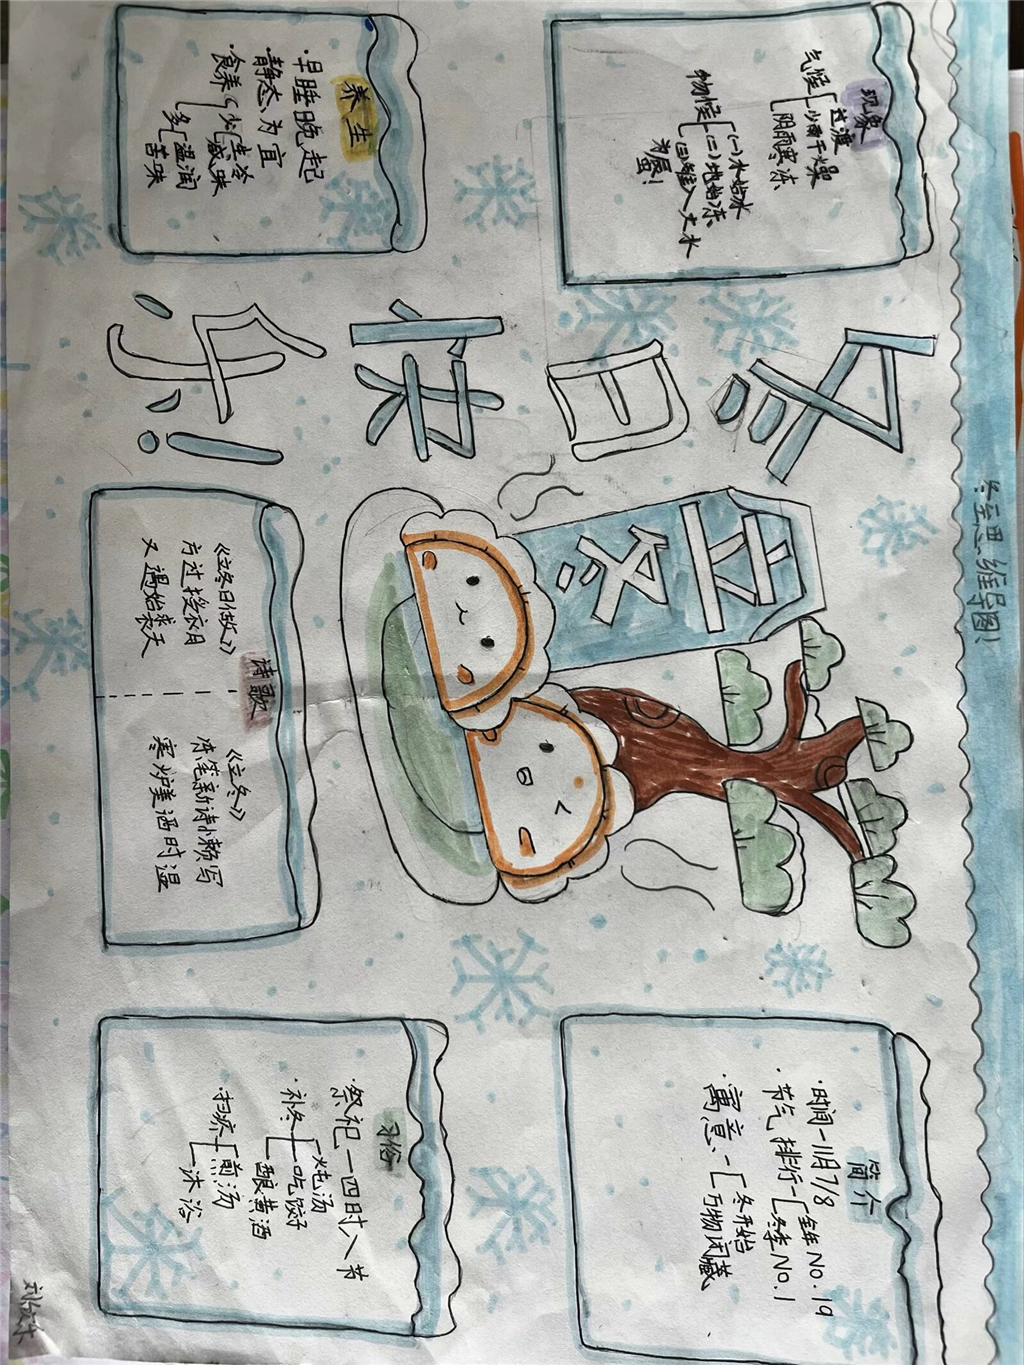 冬至思维导图!
冬日快乐!
立冬
现象
气候
过渡
少雨干燥
阴雨寒冻
物候
(一)水始冰
(二)地始冻
(三)雉入大水
为蜃!
简介
·时间-11月7/8
节气排行
全年NO.19
冬季NO.1
寓意
冬开始
万物闭藏
养生
·早睡晚起
·静态为宜
·食养
少
生冷
咸味
多
温润
苦味
诗歌
《立冬日作》
方过授衣月
又遇始裘天
《立冬》
冻笔新诗懒写
寒炉美酒时温
习俗
·祭祀-四时八节
·补冬
炖汤
吃饺子
酿黄酒
·扫疥
煎汤
沐浴